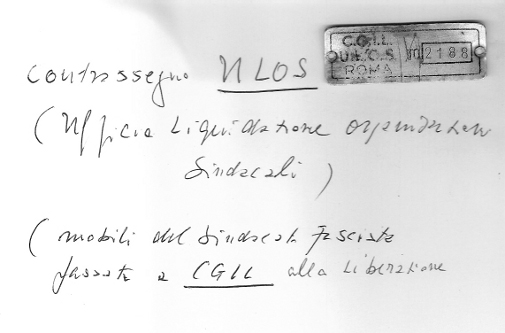 C.G.I.L.
U.L.O.S.
ROMA
2188
Contrassegno ULOS
(Ufficio Liquidazione organizzazioni
Sindacali)
(mobili del Sindacato Fascista
passati a CGIL alla Liberazione